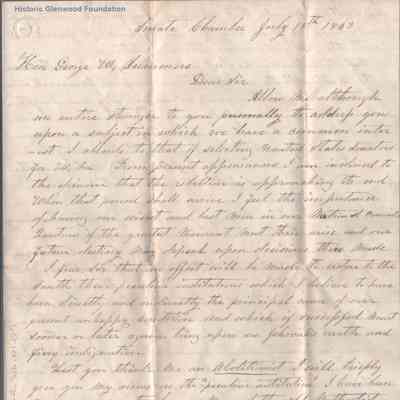 Historic Glenwood Foundation
Senate Chamber July 18th 1863
Hon George W. Summers
Dear Sir
Allow me although
an entire stranger to you personally to address you
upon a subject in which we have a common inter
est. I allude to that of selecting United States Senators
for From present appearances I am inclined to
the opinion that the rebellion is approaching its end
When that period shall arrive I feel the importance
of having our wisest and best men in our National Councils
Questions of the greatest moment must then arise and our
future destiny may depend upon decisions then made
I fear Sir that an effort will be made to restore to the
South their peculiar institutions which I believe to have
been directly and indirectly the principal cause of our
present unhappy condition and which if successful must
sooner or later again bring upon us Jehovah's wrath and
fiery indignation.
Lest you think me an Abolitionist I will briefly
give you my views on the "peculiar institution" I have been